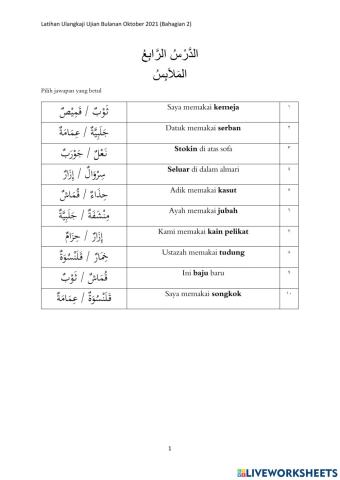 Latihan Ulangkaji Ujian Bulanan Oktober 2021 (Bahagian 2)
الدَّرْسُ الرَّابِعُ
المَلَابِسُ
Pilih jawapan yang betul
ثَوْبٌ / قَمِيْصٌ Saya memakai kemeja ١
جَلَبِيَّةٌ / عِمَامَةٌ Datuk memakai serban ٢
نَعْلٌ / جَوْرَبٌ Stokin di atas sofa ٣
سِرْوَالٌ / إِزَارٌ Seluar di dalam almari ٤
حِذَاءٌ / قُمَاشٌ Adik memakai kasut ٥
مِنْشَفَةٌ / جَلَبِيَّةٌ Ayah memakai jubah ٦
إِزَارٌ / حِزَامٌ Kami memakai kain pelikat ٧
خِمَارٌ / قَلَنْسُوَةٌ Ustazah memakai tudung ٨
قُمَاشٌ / ثَوْبٌ Ini baju baru ٩
قَلَنْسُوَةٌ / عِمَامَةٌ Saya memakai songkok ١٠
1
LIVEWORKSHEETS